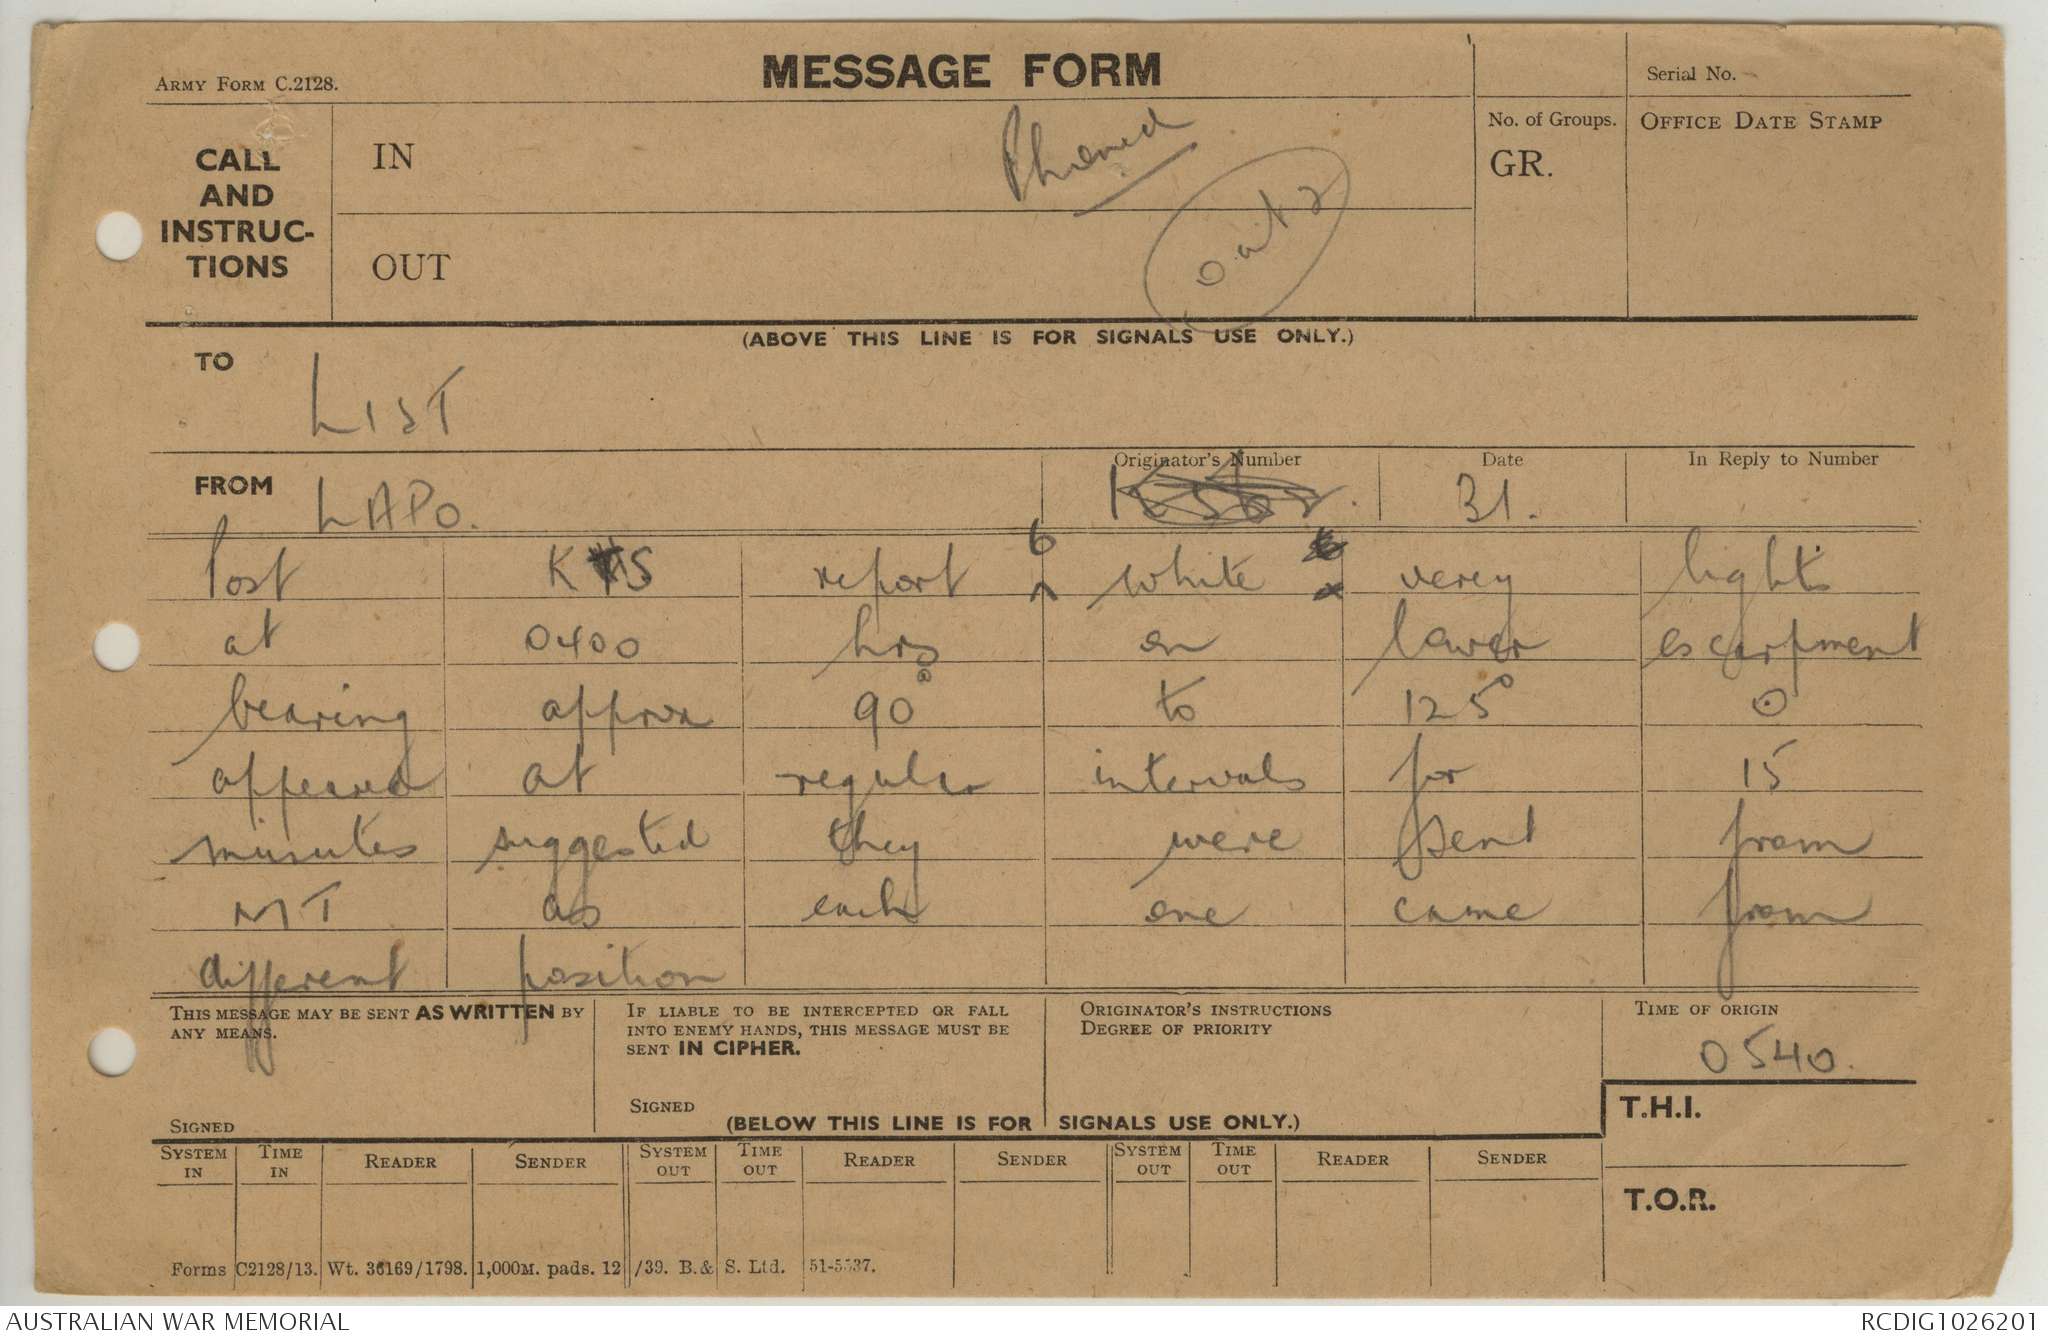 ARMY FORM C.2128.
MESSAGE FORM
Serial No.
CALL AND INSTRUC-TIONS
IN
Phoned
No. of Groups.
GR.
OFFICE DATE STAMP
OUT
(ABOVE THIS LINE IS FOR SIGNALS USE ONLY.)
TO
LIST
FROM
LAPO.
Originator's Number
Date
31.
In Reply to Number
Post K S report 6 white verey lights
at 0400 hrs on lower escarpment
bearing approx 90° to 125° ⊙
appeared at regular intervals for 15
minutes suggested they were sent from
MT as each one came from
different position
THIS MESSAGE MAY BE SENT AS WRITTEN BY ANY MEANS.
SIGNED
IF LIABLE TO BE INTERCEPTED OR FALL INTO ENEMY HANDS, THIS MESSAGE MUST BE SENT IN CIPHER.
SIGNED
ORIGINATOR'S INSTRUCTIONS
DEGREE OF PRIORITY
TIME OF ORIGIN
0540.
(BELOW THIS LINE IS FOR SIGNALS USE ONLY.)
T.H.I.
SYSTEM IN TIME IN READER SENDER SYSTEM OUT TIME OUT READER SENDER SYSTEM OUT TIME OUT READER SENDER
T.O.R.
Forms C2128/13. Wt. 36169/1798. 1,000M. pads. 12/39. B.& S. Ltd. 51-5537.
AUSTRALIAN WAR MEMORIAL
RCDIG1026201